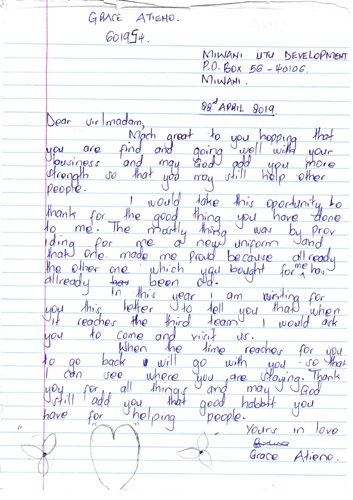 GRACE ATIENO.
601954.
MIWANI UTU DEVELOPMENT
P.O. BOX 56 - 40106.
MIWANI.
22nd APRIL 2019.
Dear sir/madam,
Mach great to you hopping that
you are find and going well with your
business and may God add you more
strength so that you may still help other
people.
I would take this oportunity to
thank for the good thing you have done
to me. The mostly thing was by prov
iding for me a new uniform and
that one made me proud because allready
the other one which you bought for me has
allready been old.
In this year I am writing for
you this letter to tell you that when
it reaches the third team I would ask
you to come and visit us.
When the time reaches for you
to go back I will go with you so that
I can see where you are staying. Thank
you for all things and may God
still add you that good habbit you
have for helping people.
Yours in love
Grace Atieno.